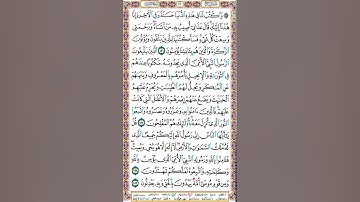 وَاكْتُبْ لَنَا فِي هَٰذِهِ الدُّنْيَا حَسَنَةً وَفِي الْآخِرَةِ إِنَّا
هُدْنَا إِلَيْكَ قَالَ عَذَابِي أُصِيبُ بِهِ مَنْ أَشَاءُ وَرَحْمَتِي
وَسِعَتْ كُلَّ شَيْءٍ فَسَأَكْتُبُهَا لِلَّذِينَ يَتَّقُونَ وَيُؤْتُونَ
الزَّكَاةَ وَالَّذِينَ هُمْ بِآيَاتِنَا يُؤْمِنُونَ الَّذِينَ يَتَّبِعُونَ
الرَّسُولَ النَّبِيَّ الْأُمِّيَّ الَّذِي يَجِدُونَهُ مَكْتُوبًا عِنْدَهُمْ
فِي التَّوْرَاةِ وَالْإِنْجِيلِ يَأْمُرُهُمْ بِالْمَعْرُوفِ وَيَنْهَاهُمْ
عَنِ الْمُنْكَرِ وَيُحِلُّ لَهُمُ الطَّيِّبَاتِ وَيُحَرِّمُ عَلَيْهِمُ
الْخَبَائِثَ وَيَضَعُ عَنْهُمْ إِصْرَهُمْ وَالْأَغْلَالَ الَّتِي كَانَتْ
عَلَيْهِمْ فَالَّذِينَ آمَنُوا بِهِ وَعَزَّرُوهُ وَنَصَرُوهُ وَاتَّبَعُوا
النُّورَ الَّذِي أُنْزِلَ مَعَهُ أُولَٰئِكَ هُمُ الْمُفْلِحُونَ قُلْ
يَا أَيُّهَا النَّاسُ إِنِّي رَسُولُ اللَّهِ إِلَيْكُمْ جَمِيعًا الَّذِي
لَهُ مُلْكُ السَّمَاوَاتِ وَالْأَرْضِ لَا إِلَٰهَ إِلَّا هُوَ يُحْيِي وَيُمِيتُ
فَآمِنُوا بِاللَّهِ وَرَسُولِهِ النَّبِيِّ الْأُمِّيِّ الَّذِي يُؤْمِنُ بِاللَّهِ
وَكَلِمَاتِهِ وَاتَّبِعُوهُ لَعَلَّكُمْ تَهْتَدُونَ
وَمِنْ قَوْمِ مُوسَىٰ أُمَّةٌ يَهْدُونَ بِالْحَقِّ وَبِهِ يَعْدِلُونَ